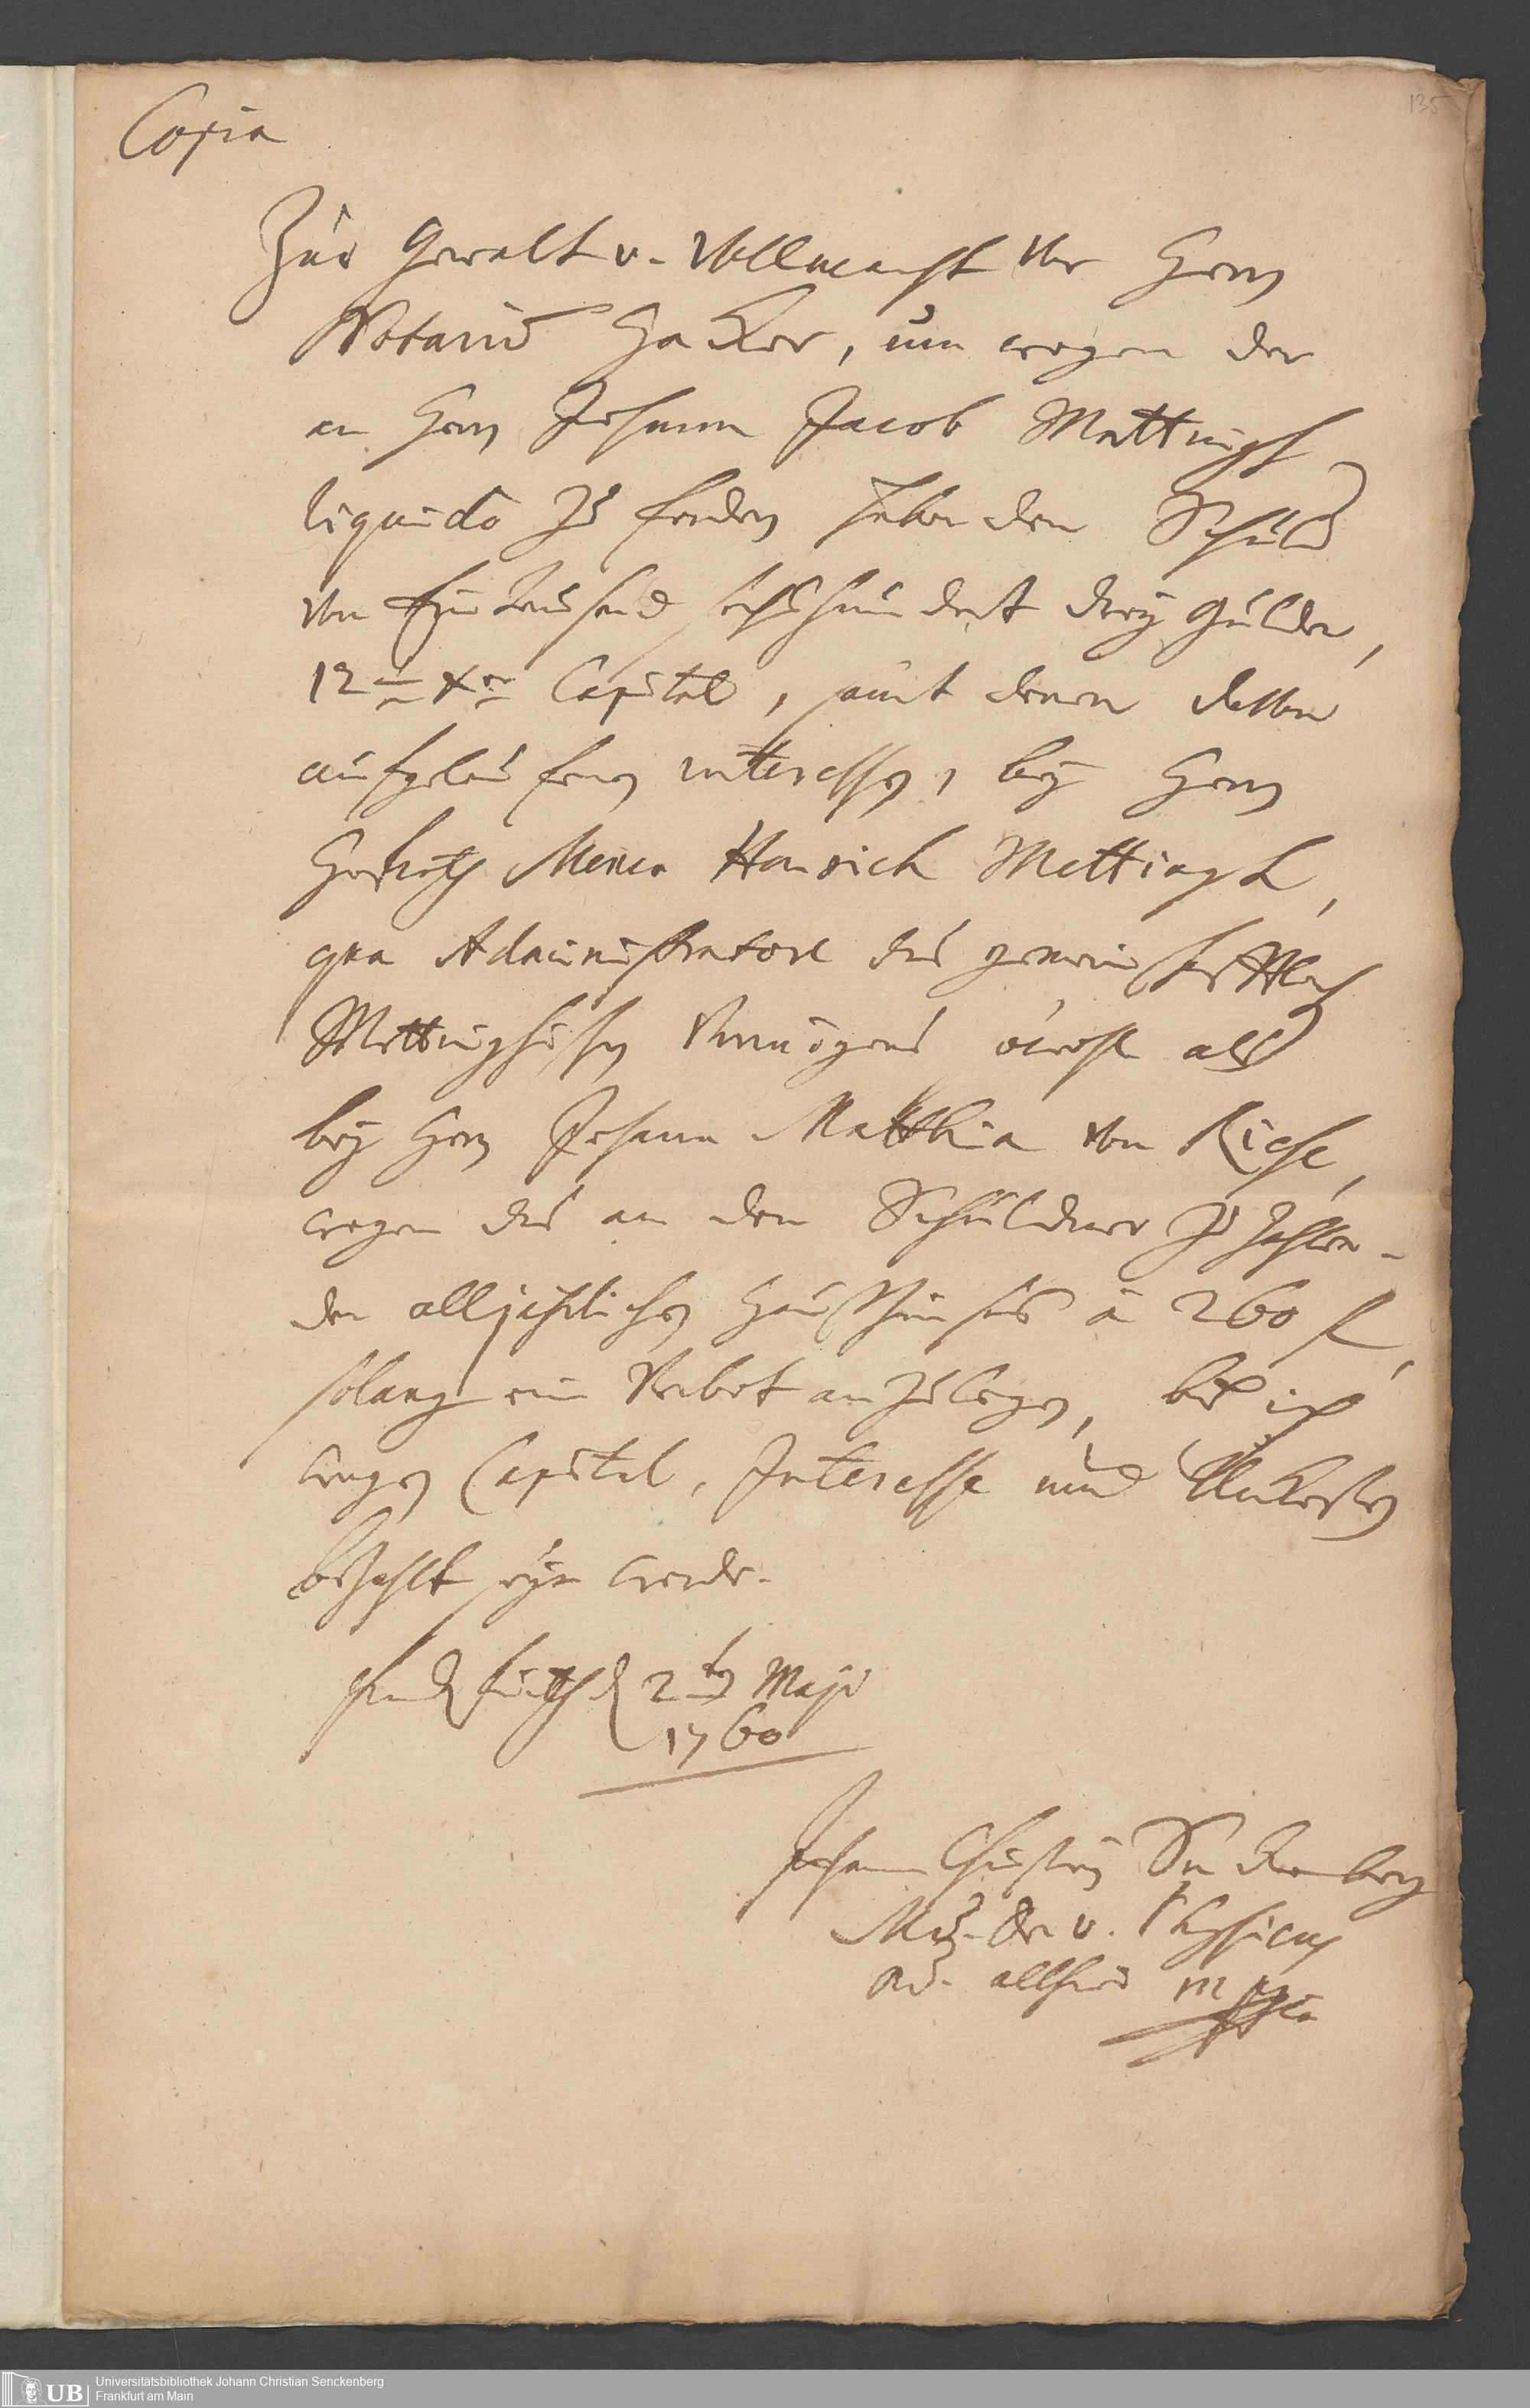 135
Copia
Zur Gewalt u. Vollmacht vor Herrn
Notario Hacker, um wegen der
an Herrn Johann Jacob Mettingh
liquido zu fordern habenden Schuld
von Eintausend sechshundert drey Gulden,
12 xr Capital, samt denen davon
aufgelaufenen interessen, bey Herrn
Hofrath Menco Henrich Mettingh,
qua Administratore des gemeinschafftlichen
Mettinghischen Vermögens sowohl als
bey Herrn Johann Matthia von Riese,
wegen des an den Schuldner zu zahlen-
den alljährlichen Haußzinses à 260 f,
solang ein Verbot anzulegen, bis ich
wegen Capital, Interesse und Unkosten
bezahlt seyn werde.
Franckfurth d 2ten Maji
1760
Johann Christian Senckenberg
Med. Dr. u. Physicus
ord. allhier mppria
Universitätsbibliothek Johann Christian Senckenberg
UB Frankfurt am Main